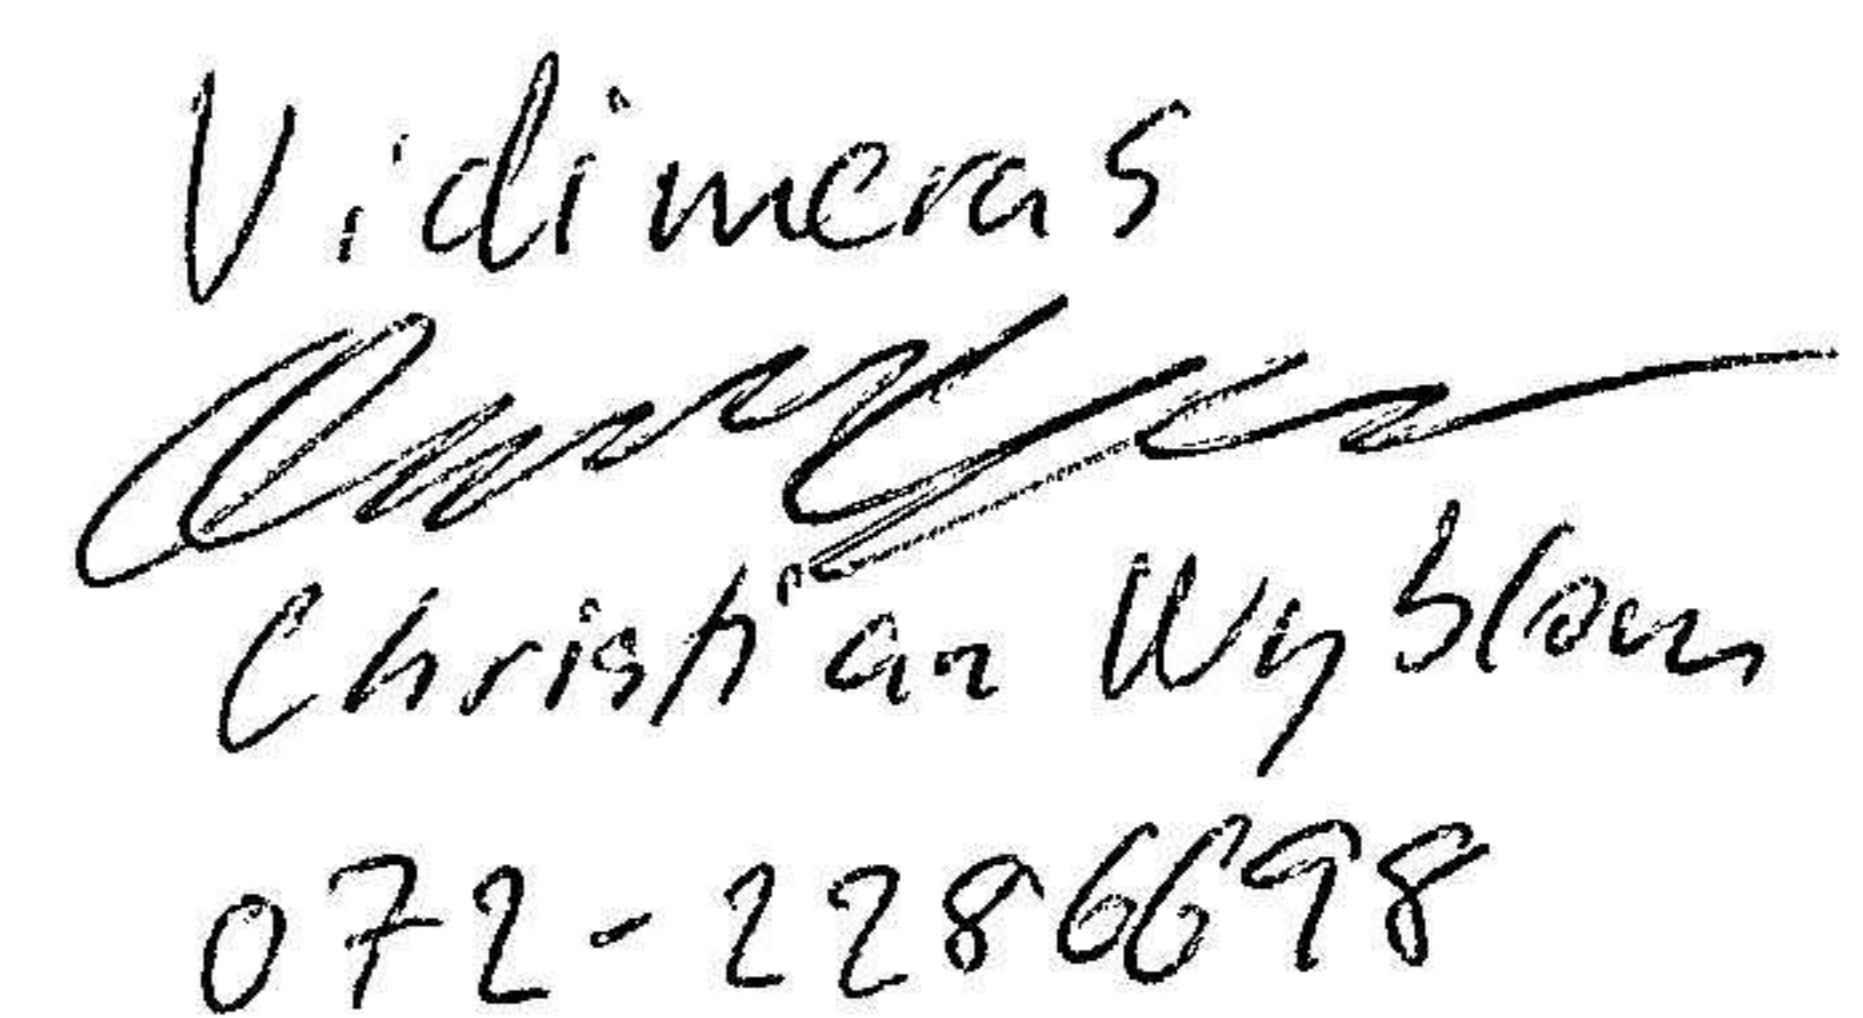 Vidimeras
Christian Wyblom
072-2286698